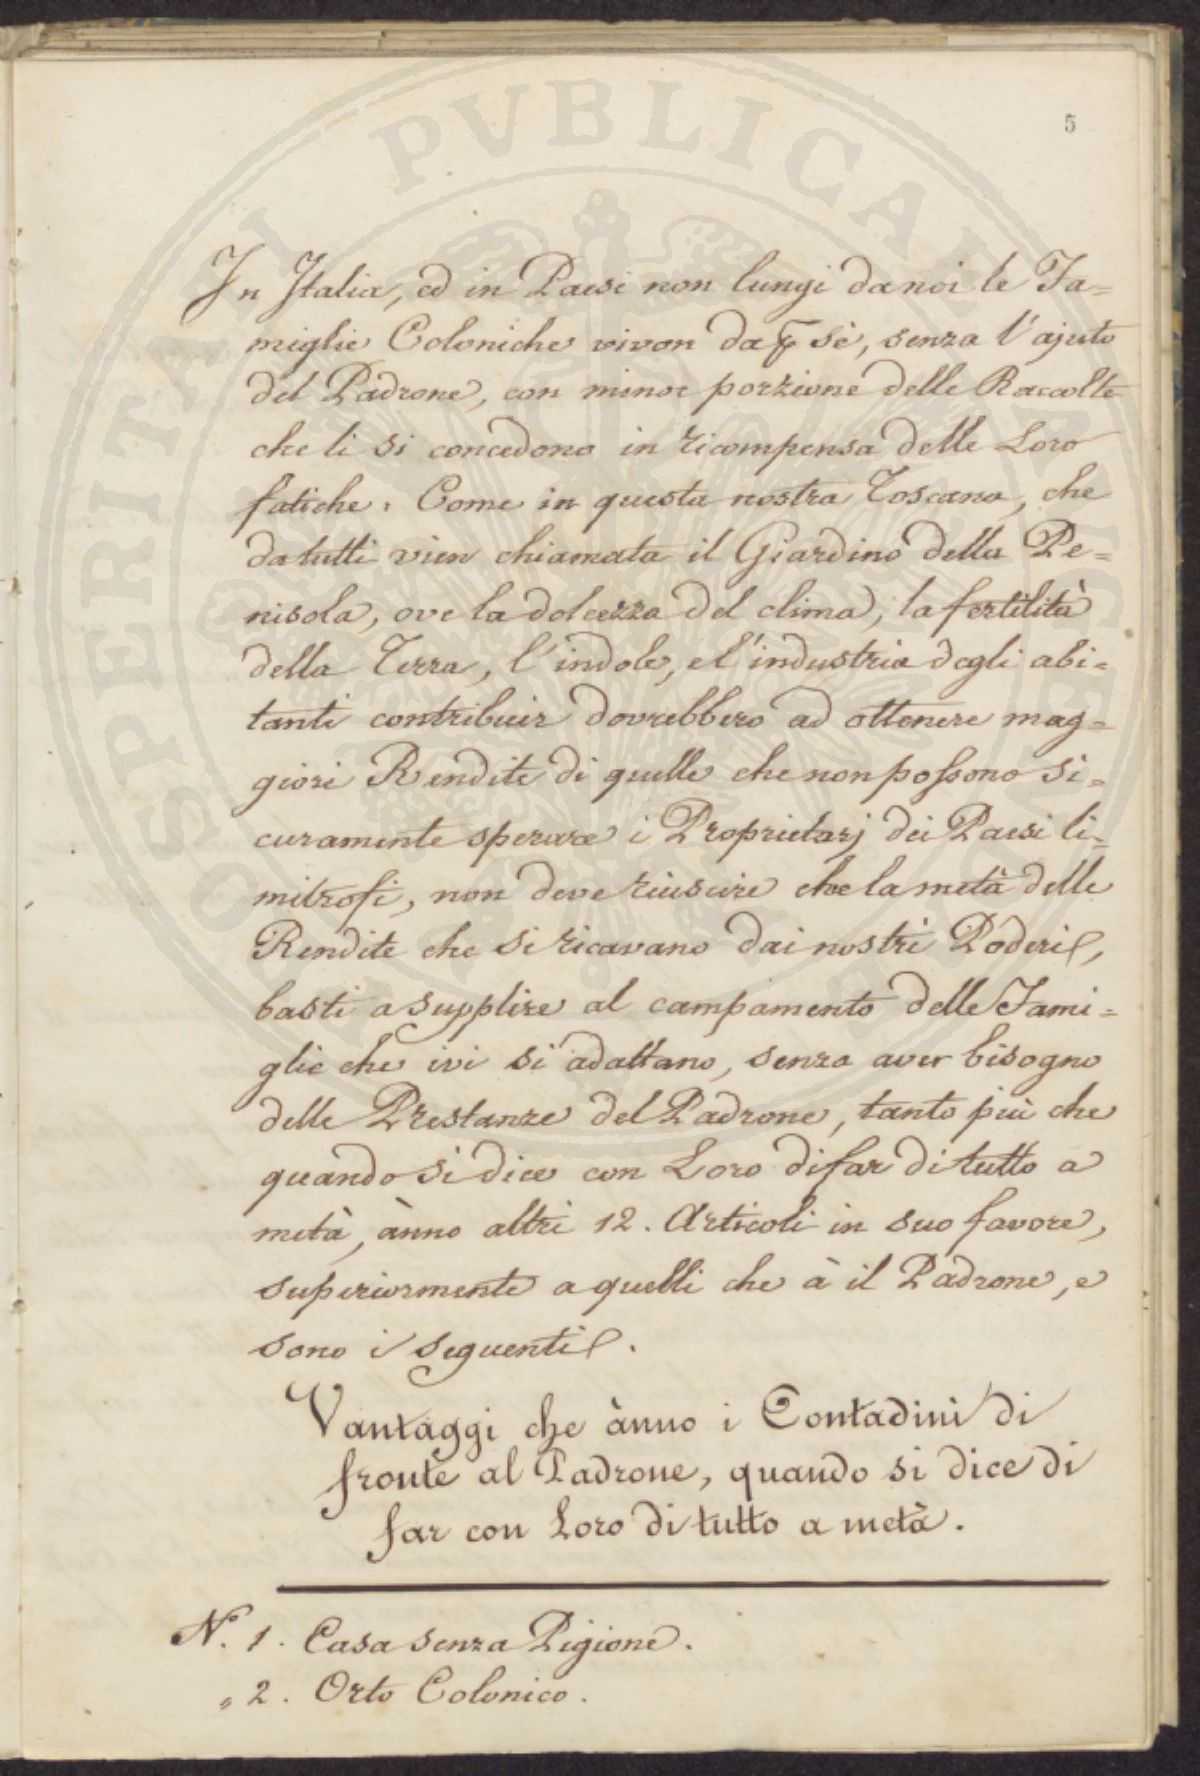 5
In Italia, ed in Paesi non lungi da noi le Fa=
miglie Coloniche vivon da p sè, senza l'ajuto
del Padrone, con minor porzione delle Raccolte
che li si concedono in ricompensa delle Loro
fatiche: Come in questa nostra Toscana, che
da tutti vien chiamata il Giardino della Pe=
nisola, ove la dolcezza del clima, la fertilità
della Terra, l'indole, e l'industria degli abi=
tanti contribuir dovrebbero ad ottenere mag=
giori Rendite di quelle che non possono si=
curamente sperare i Proprietarj dei Paesi li=
mitrofi, non deve riuscire che la metà delle
Rendite che si ricavano dai nostri Poderi,
basti a supplire al campamento delle Fami=
glie che ivi si adattano, senza aver bisogno
delle Prestanze del Padrone, tanto più che
quando si dice con Loro di far di tutto a
metà, ànno altri 12. Articoli in suo favore,
superiormente a quelli che à il Padrone, e
sono i seguenti.
Vantaggi che ànno i Contadini di
fronte al Padrone, quando si dice di
far con Loro di tutto a metà.
N.° 1. Casa senza Pigione.
" 2. Orto Colonico.